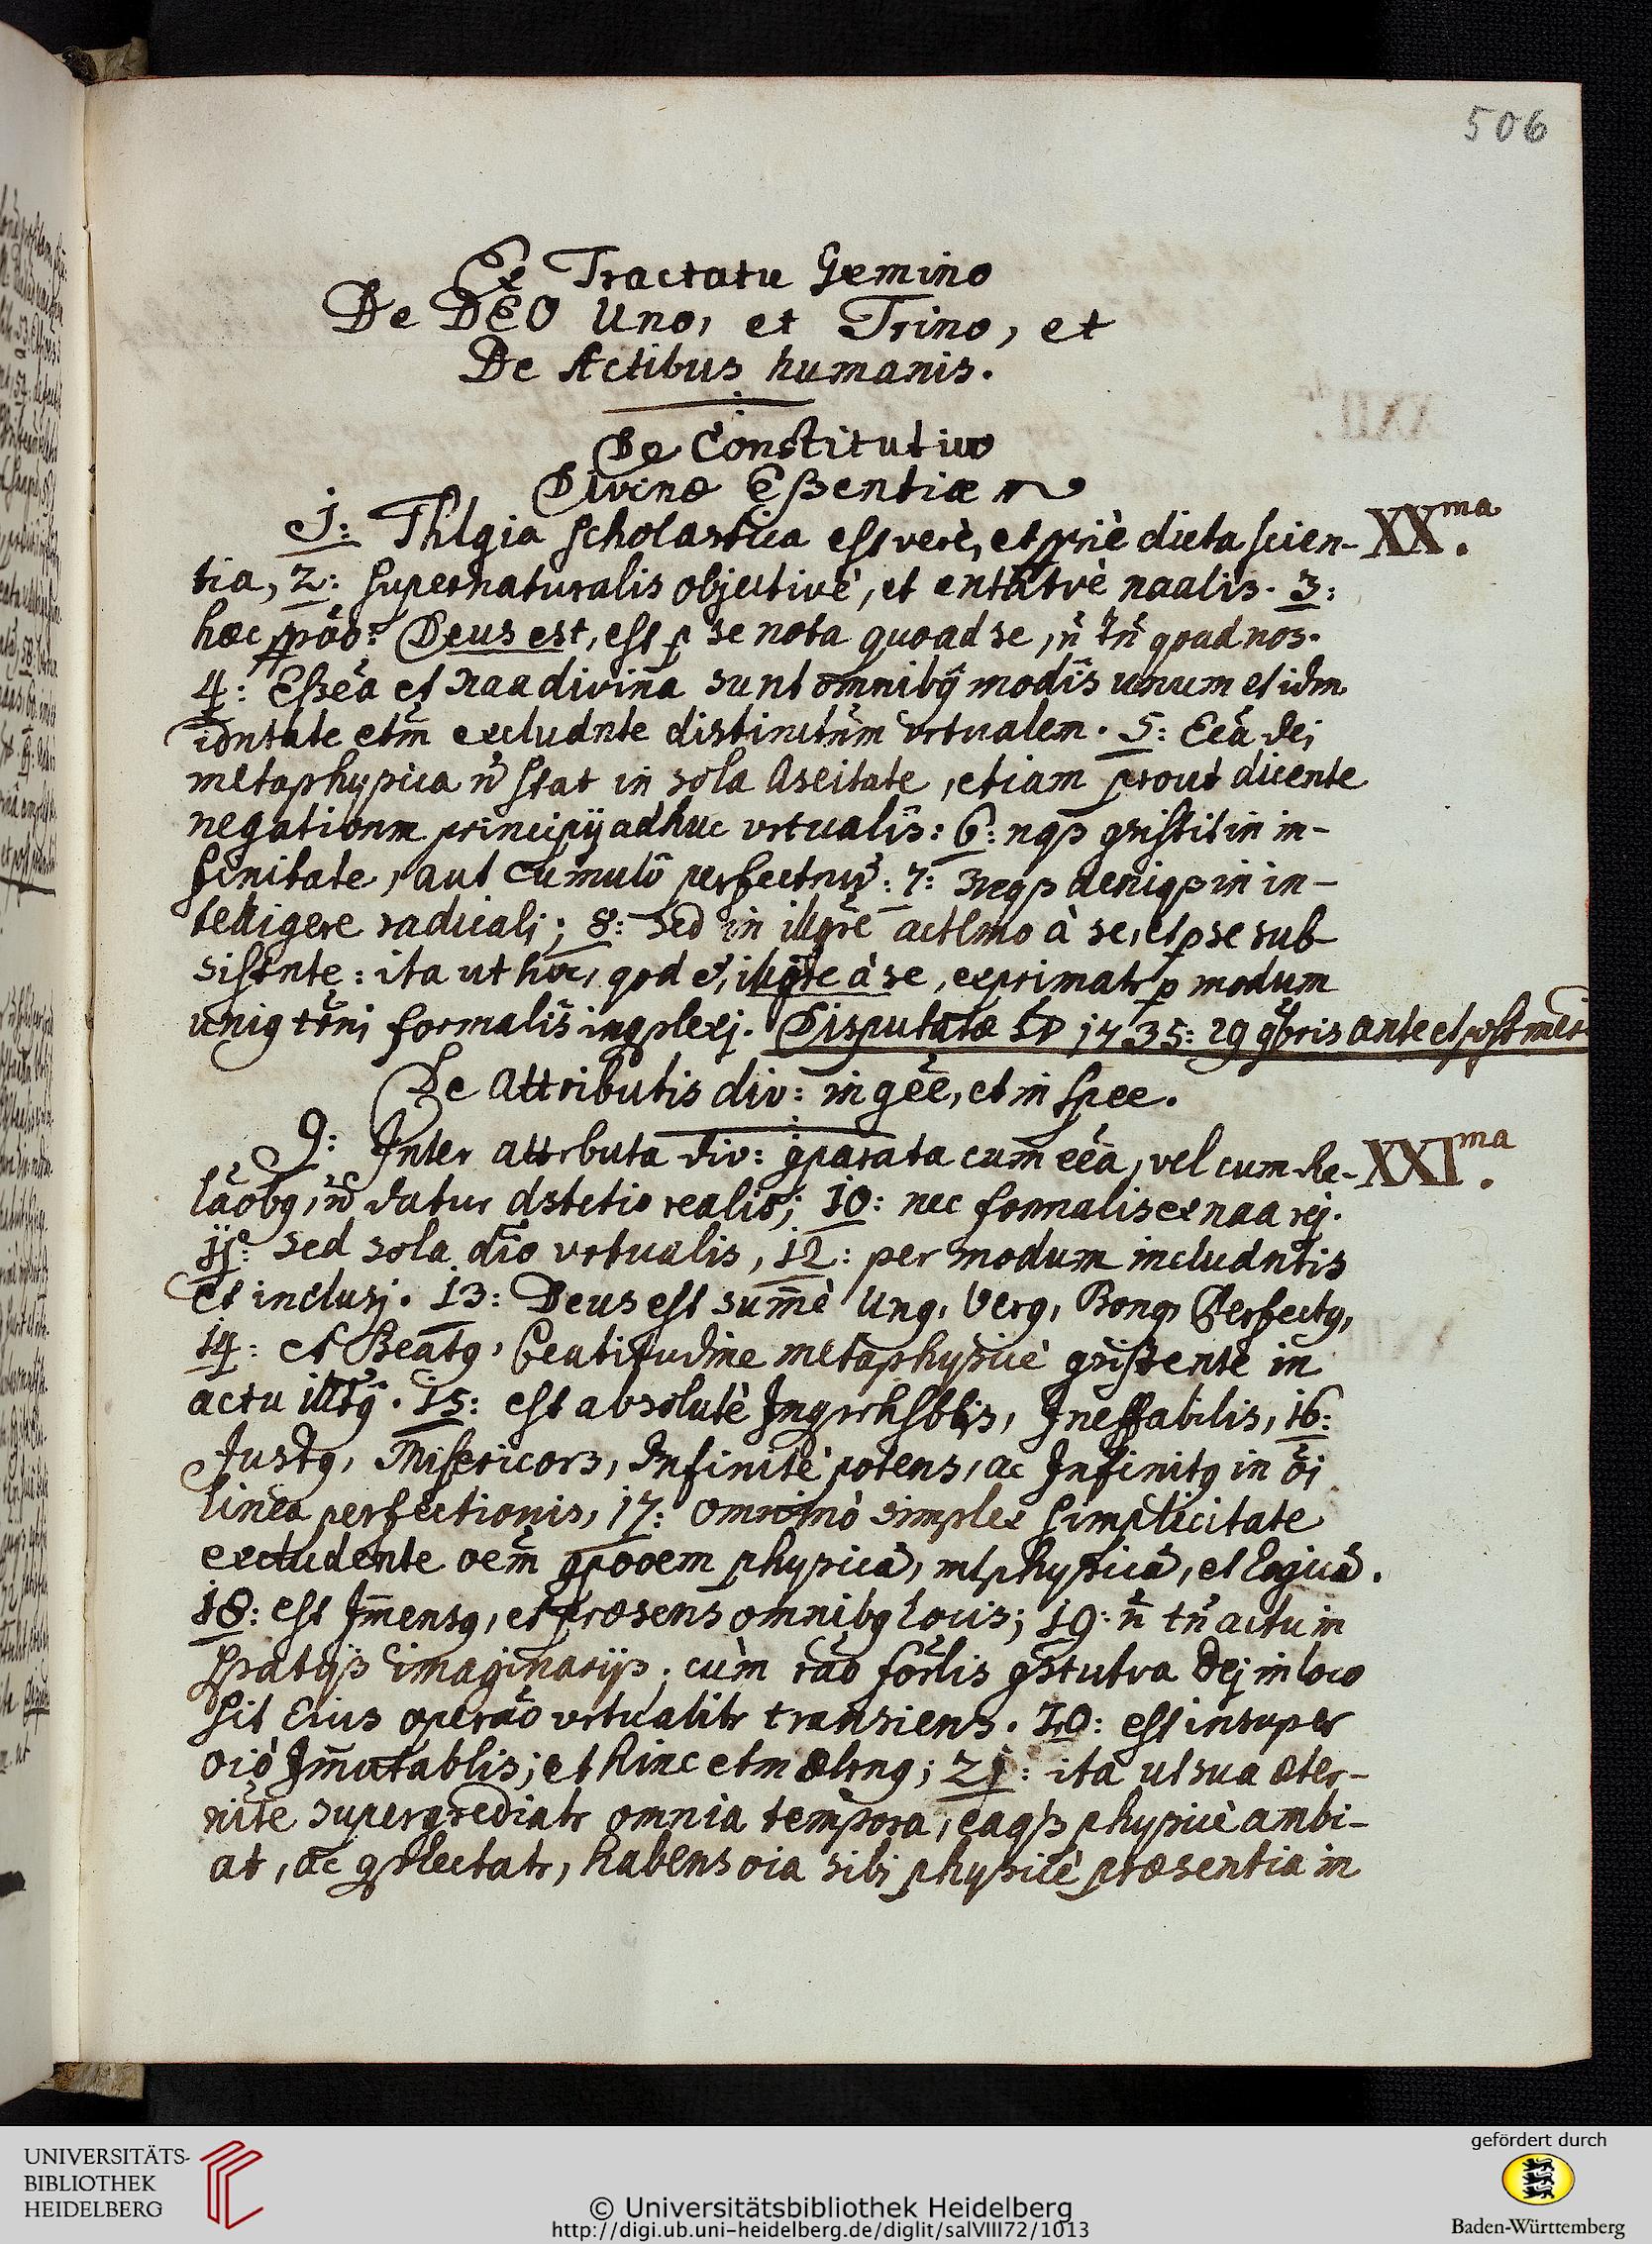 506
Ex Tractatu Gemino
De DEO Uno, et Trino, et
De Actibus humanis.
De Constitutivo
Divinæ Eßentiæ
1: Thlgia scholastica est verè, et ppriè dicta scien- XXma.
tia, 2: supernaturalis objectivè, et entatvè naalis. 3:
hæc ppão: Deus est, est p se nota quoad se, ñ tñ qoad nos.
4: Eßẽa et naa divina sunt omnibꝯ modis unum et idm
idntate etm excludnte distinctnm vrtualem. 5: Eẽa Dej
metaphysica ñ stat in sola Aseitate, etiam prout dicente
negationm principij adhuc vrtualis: 6: nqꝫ ꝯsistit in in-
finitate, aut cumulo perfectnũ: 7: neqꝫ deniqꝫ in in-
telligere radicali; 8: sed in illgre actlmo à se, et p se sub
sistnte: ita ut hoc, qod ẽ, illgre à se, exprimatr p modum
uniꝯ trñi formalis inꝯplexj. Disputatæ 1735: 29 9bris ante et post
De Attributis div: in gẽe, et in spee.
9: Inter attrbuta div: ꝯparata cum eẽa, vel cum Re- XXIma.
lãobꝯ, ñ datur dstctio realis; 10: nec formalis ex naa rej.
11: sed sola dĩo vrtualis, 12: per modum includntis
et inclusj. 13: Deus est sum̃è Unꝯ, Verꝯ, Bonꝯ, Perfectꝯ,
14: et Beatꝯ, beatitudine metaphysicè ꝯsistente in
actu illtꝯ. 15: est absolutè Inꝯprhsblis, Ineffabilis, 16:
Justꝯ, Misericors, Infinitè potens, ac Infinitꝯ in õi
linea perfectionis, 17: omnino simplex simplicitate
excludente oem̃ ꝯpooem physicã, mtphysicã, et logicã.
18: est Im̃ensꝯ, et præsens omnibꝯ locis; 19: ñ tñ actu in
spatijs imaginarijs; cùm rão forlis ꝯstutva Dej in loco
sit Eius operão vrtualitr transiens. 20: est insuper
oiò Im̃utablis; et hinc etm ætrnꝯ; 21: ita ut sua æter-
nite supergrediatr omnia tempora, eaqꝫ physicè ambi-
at, ac ꝯplectatr, habens oia sibi physicè præsentia in
UNIVERSITÄTS-
BIBLIOTHEK
HEIDELBERG
© Universitätsbibliothek Heidelberg
http://digi.ub.uni-heidelberg.de/diglit/salVIII72/1013
gefördert durch
Baden-Württemberg